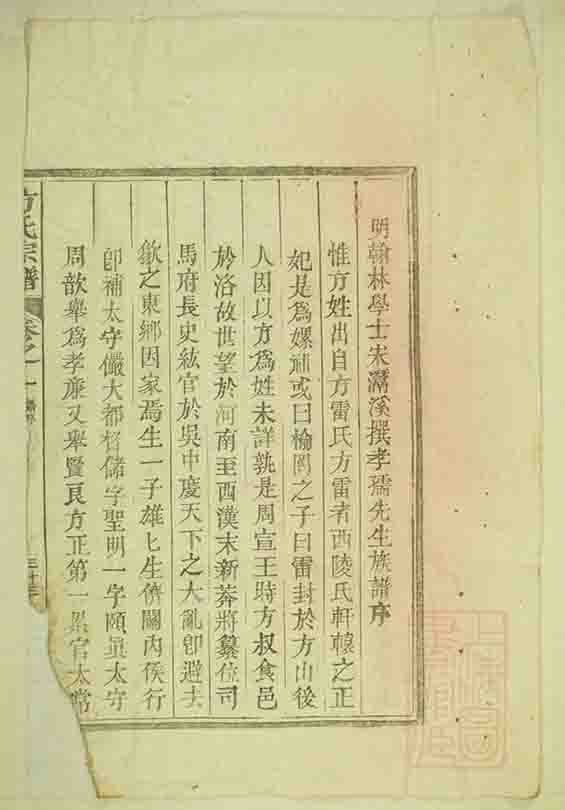 明翰林學士宋潛溪撰孝孺先生族譜序
惟方姓出自方雷氏方雷者西陵氏軒轅之正
妃是爲嫘祖或曰榆罔之子曰雷封於方山後
人因以方爲姓未詳孰是周宣王時方叔食邑
於洛故世望於河南至西漢末新莽將纂位司
馬府長史紘官於吳中慶天下之大亂卽避去
歙之東鄉因家焉生一子雄七生儕關內侯行
卽補太守儼大都督儲字聖明一字頤眞太守
周歆舉爲孝廉又舉賢良方正第一累官太常
方氏宗譜
卷之一
三十三